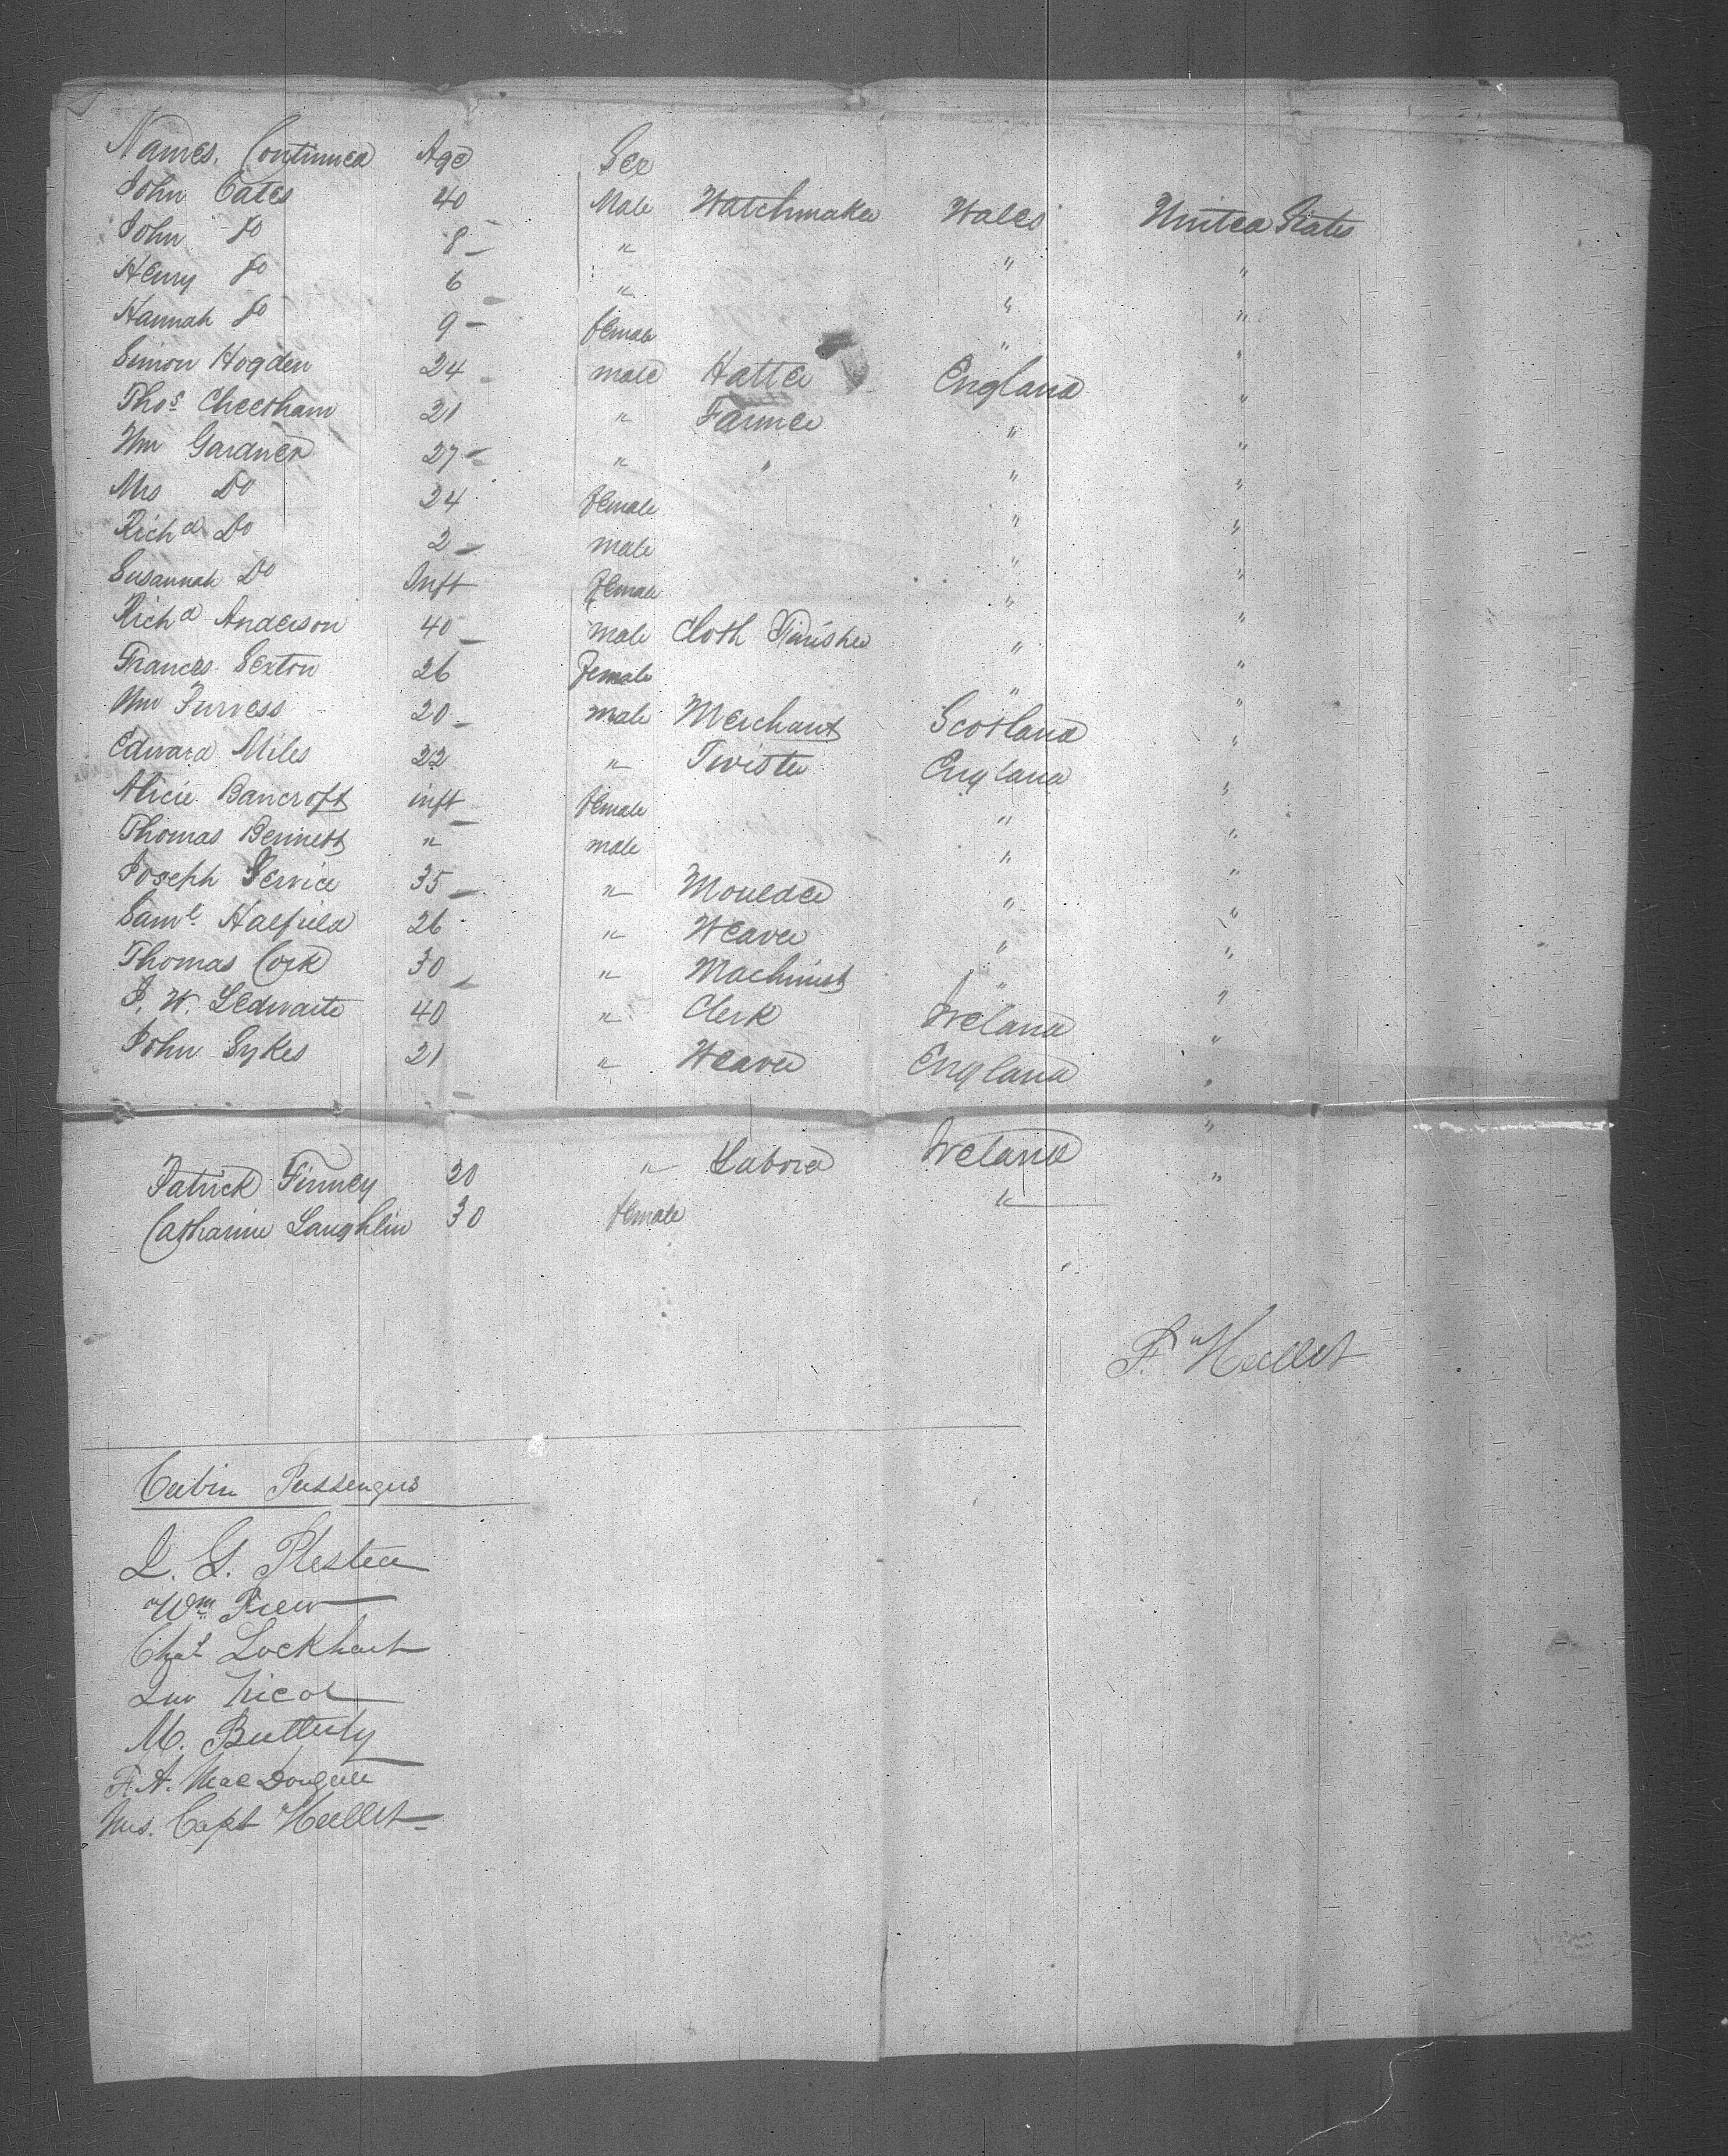 Names Continued Age Sex
John Oates 40 Male Watchmaker Wales United States
John Do 8 " " "
Henry Do 6 " " "
Hannah Do 9 female " "
Simon Hogden 24 male Hatter England "
Thos Cheetham 21 " Farmer " "
Wm Gardner 27 " " " "
Mrs Do 24 female " "
Richd Do 2 male " "
Susannah Do Inft female " "
Richd Anderson 40 male Cloth Finisher " "
Frances Sexton 26 female " "
Wm Furness 20 male Merchant Scotland "
Edward Miles 22 " Twister England "
Alicie Bancroft inft female " "
Thomas Bennett " male " "
Joseph Service 35 " Moulder " "
Saml Halfield 26 " Weaver " "
Thomas Cork 30 " Machinist " "
J. W. Ledwaite 40 " Clerk Ireland "
John Sykes 21 " Weaver England "
Patrick Finney 20 " Laborer Ireland "
Catharine Laughlin 30 female " "
F. Hallet
Cabin Passengers
L. G.
Wm Frew
Chas Lockhart
Nicol
M. Butterly
F. A. MacDougall
Mrs. Capt Hallet